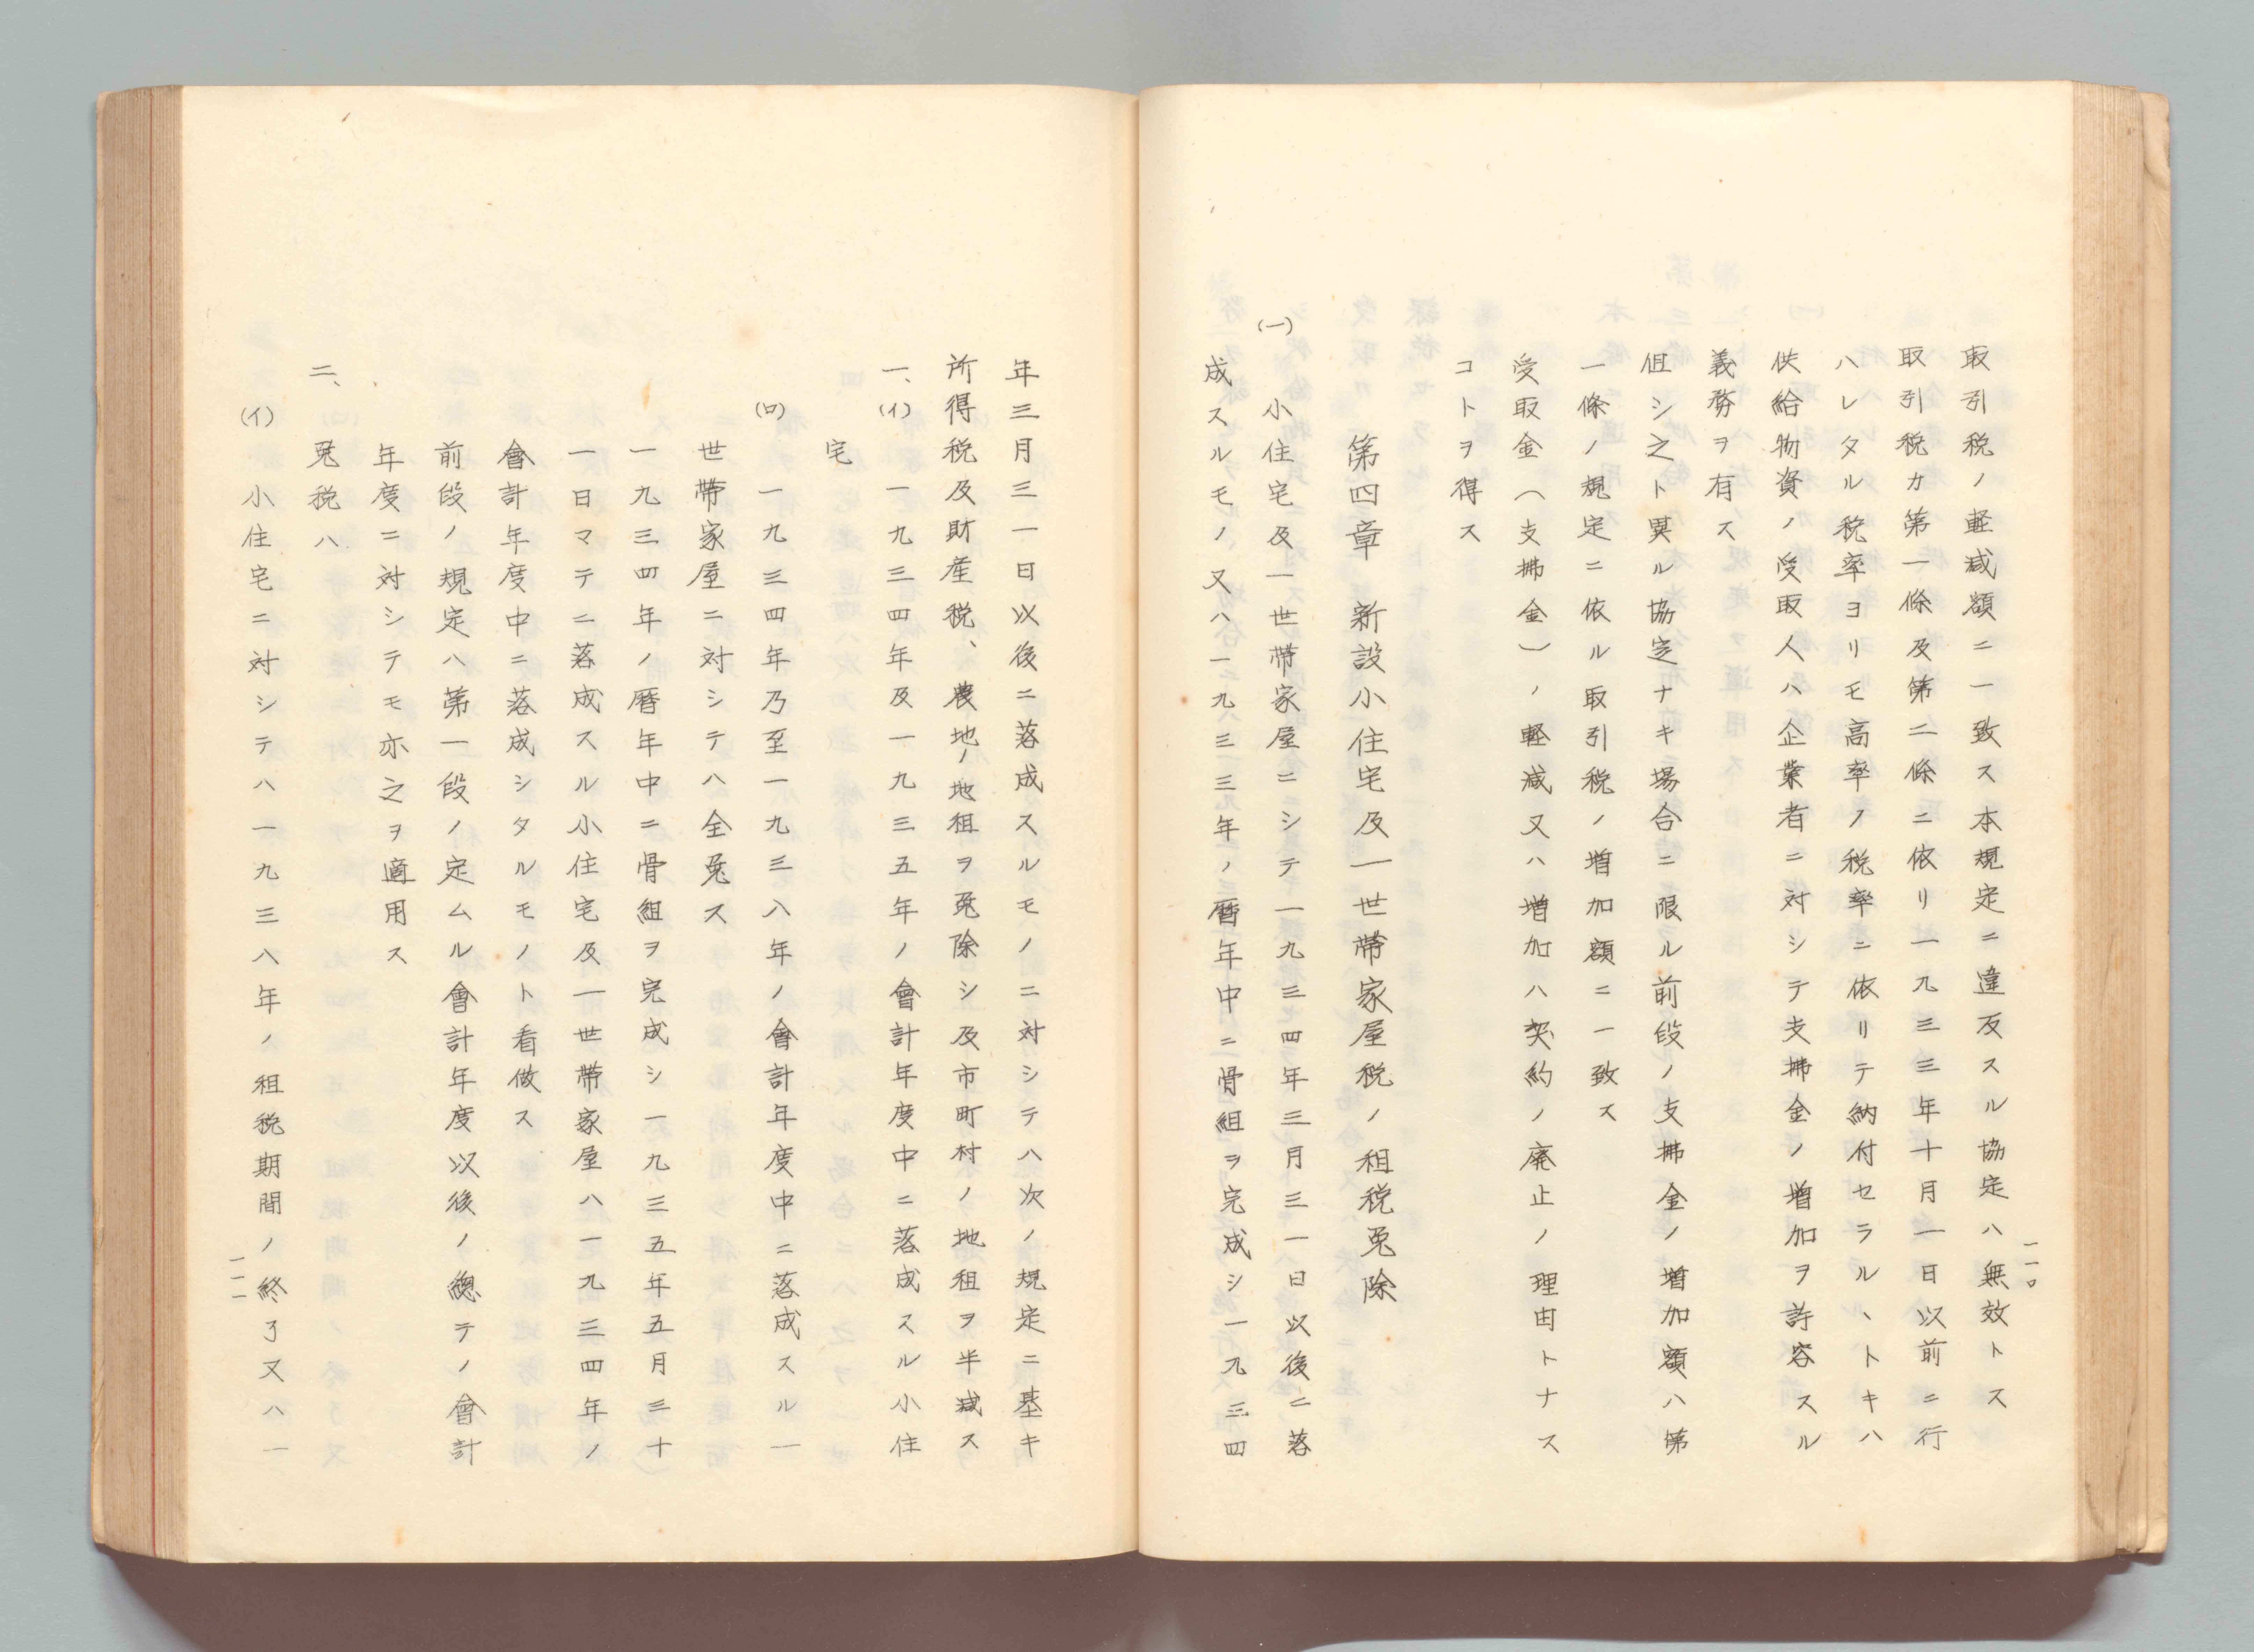 取引税ノ軽減額ニ一致ス本規定ニ違反スル協定ハ無效トス
取引税カ第一條及第二條ニ依リ一九三三年十月一日以前ニ行
ハレタル税率ヨリモ高率ノ税率ニ依リテ納付セラルヽトキハ
供給物資ノ受取人ハ企業者ニ対シテ支拂金ノ増加ヲ許容スル
義務ヲ有ス
但シ之ト異ル協定ナキ場合ニ限ル前段ノ支拂金ノ増加額ハ第
一條ノ規定ニ依ル取引税ノ増加額ニ一致ス
受取金(支拂金)ノ軽減又ハ増加ハ契約ノ廃止ノ理由トナス
コトヲ得ス
第四章 新設小住宅及一世帶家屋税ノ租税免除
(一) 小住宅及一世帶家屋ニシテ一九三四年三月三一日以後ニ落
成スルモノ又ハ一九三三年ノ暦年中ニ骨組ヲ完成シ一九三四
一一〇
年三月三一日以後ニ落成スルモノニ対シテハ次ノ規定ニ基キ
所得税及財産税、農地ノ地租ヲ免除シ及市町村ノ地租ヲ半減ス
一、(イ) 一九三四年及一九三五年ノ會計年度中ニ落成スル小住
宅
(ロ) 一九三四年乃至一九三八年ノ會計年度中ニ落成スル一
世帶家屋ニ対シテハ全免ス
一九三四年ノ暦年中ニ骨組ヲ完成シ一九三五年五月三十
一日マテニ落成スル小住宅及一世帶家屋ハ一九三四年ノ
會計年度中ニ落成シタルモノト看做ス
前段ノ規定ハ第一段ノ定ムル會計年度以後ノ總テノ會計
年度ニ対シテモ亦之ヲ適用ス
二、免税ハ
(イ) 小住宅ニ対シテハ一九三八年ノ租税期間ノ終了又ハ一
一一一